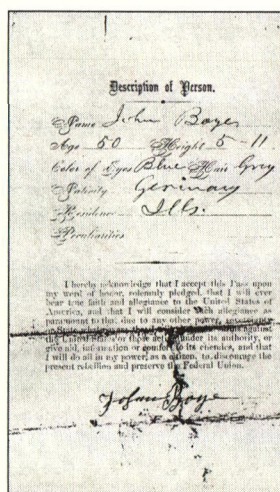 Description of Person.
Name John Boyer
Age 50 Height 5-11
Color of Eyes Blue Hair Grey
Nativity Germany
Residence Ills.
Peculiarities
I hereby acknowledge that I accept this Pass upon
my word of honor, solemnly pledged, that I will ever
bear true faith and allegiance to the United States of
America, and that I will consider such allegiance as
paramount to that due to any other power,
State
the United States or those under its authority, or
give aid, information or comfort to its enemies, and that
I will do all in my power, as a citizen, to discourage the
present rebellion and preserve the Federal Union.
Johann Boye